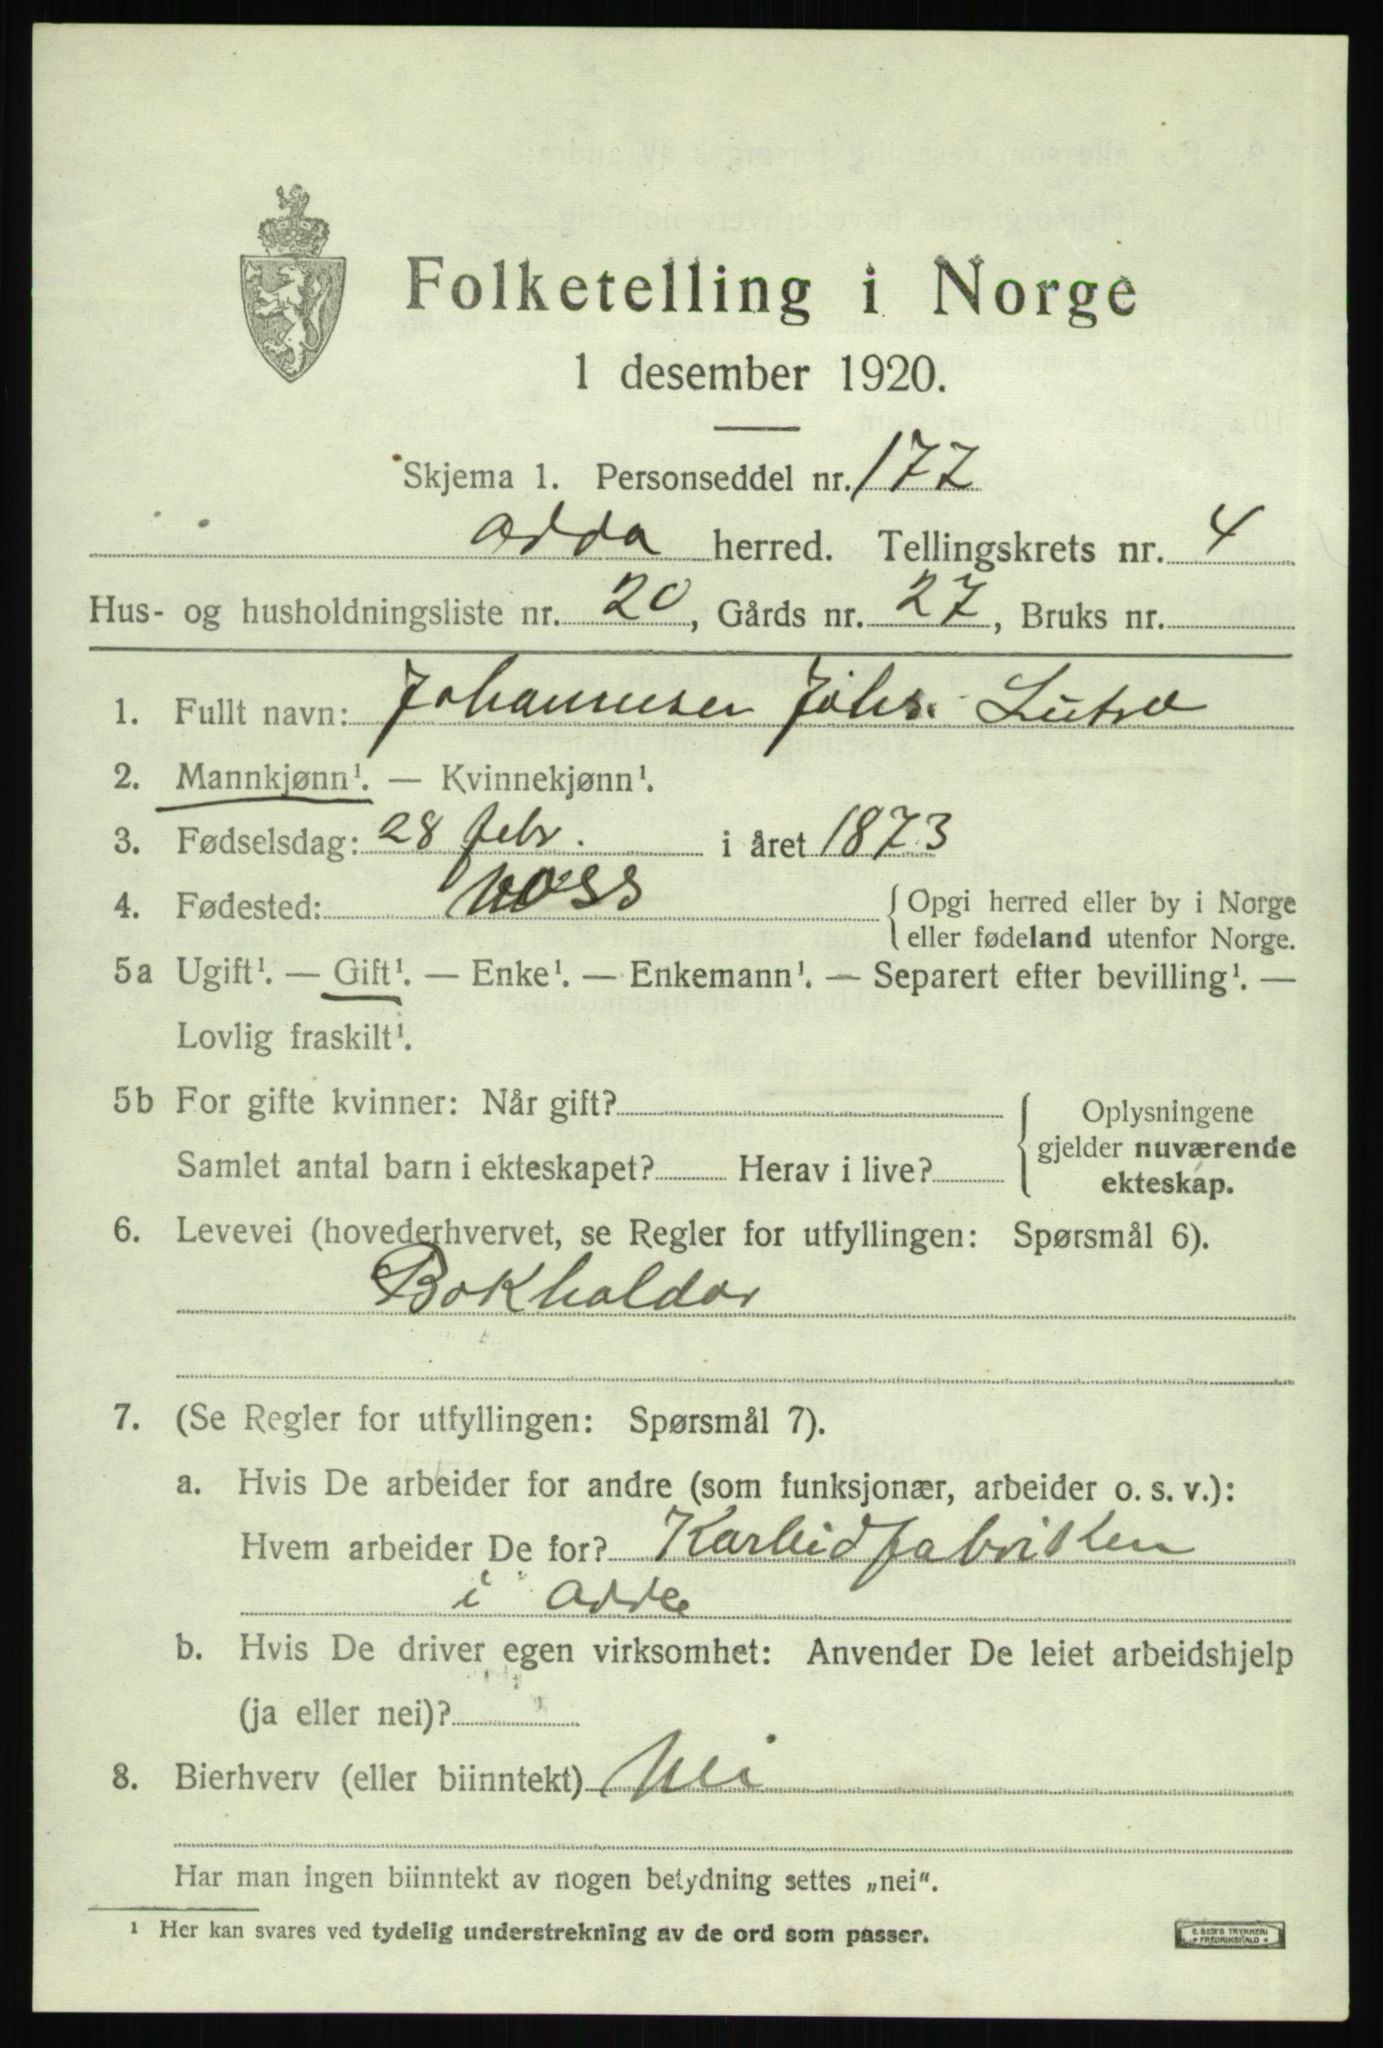 Folketelling i Norge
1 desember 1920.
Skjema 1. Personseddel nr. 177
Odda herred. Tellingskrets nr. 4
Hus- og husholdningsliste nr. 20, Gårds nr. 27, Bruks nr.
1. Fullt navn: Johannes Johs. Lutro
2. Mannkjønn¹. — Kvinnekjønn¹.
3. Fødselsdag: 28 febr. i året 1873
4. Fødested: Voss { Opgi herred eller by i Norge
eller fødeland utenfor Norge.
5a Ugift¹. — Gift¹. — Enke¹. — Enkemann¹. — Separert efter bevilling¹. —
Lovlig fraskilt¹.
5b For gifte kvinner: Når gift? { Oplysningene
gjelder nuværende
Samlet antal barn i ekteskapet? Herav i live?
ekteskap.
6. Levevei (hovederhvervet, se Regler for utfyllingen: Spørsmål 6).
Bokholdar
7. (Se Regler for utfyllingen: Spørsmål 7).
a. Hvis De arbeider for andre (som funksjonær, arbeider o. s. v.):
Hvem arbeider De for? Karbidfabrikken
i Odda
b. Hvis De driver egen virksomhet: Anvender De leiet arbeidshjelp
(ja eller nei)?
8. Bierhverv (eller biinntekt) Nei
Har man ingen biinntekt av nogen betydning settes „nei".
¹ Her kan svares ved tydelig understrekning av de ord som passer.
E. SEM'S TRYKKERI
* FREDRIKSHALD *